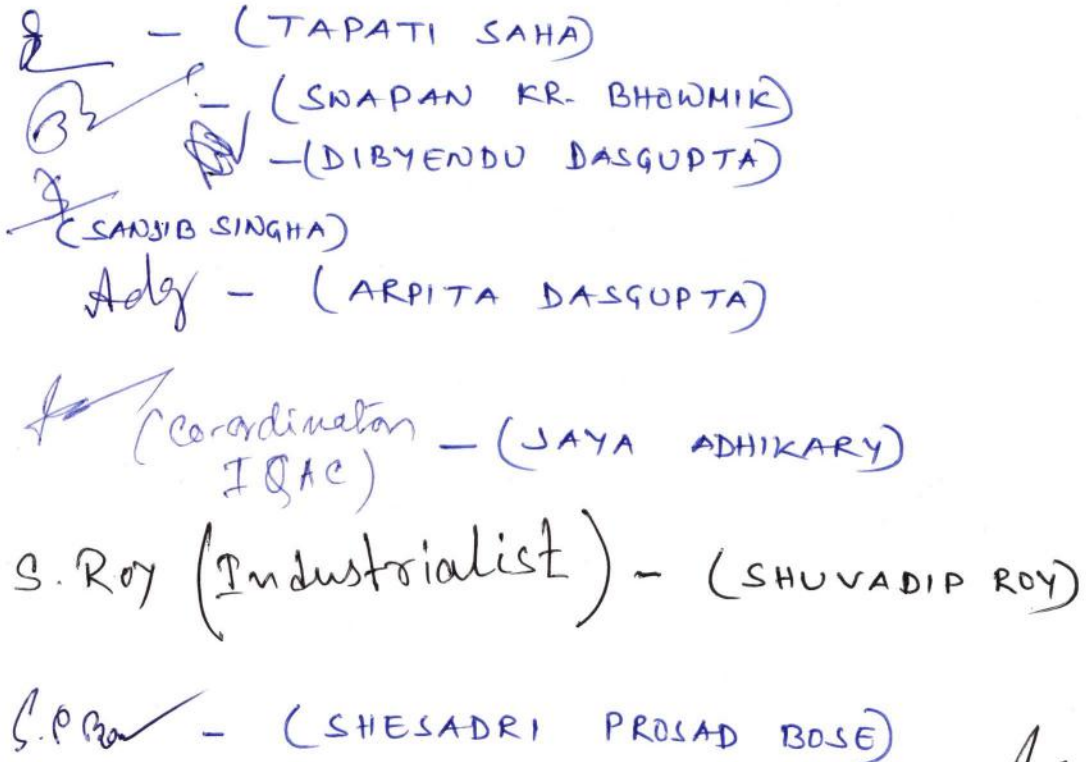 - (TAPATI SAHA)
- (SWAPAN KR. BHOWMIK)
- (DIBYENDU DASGUPTA)
(SANJIB SINGHA)
Adg - (ARPITA DASGUPTA)
(Co-ordinator - (JAYA ADHIKARY)
IQAC)
S. Roy (Industrialist) - (SHUVADIP ROY)
S.P Bose - (SHESADRI PROSAD BOSE)